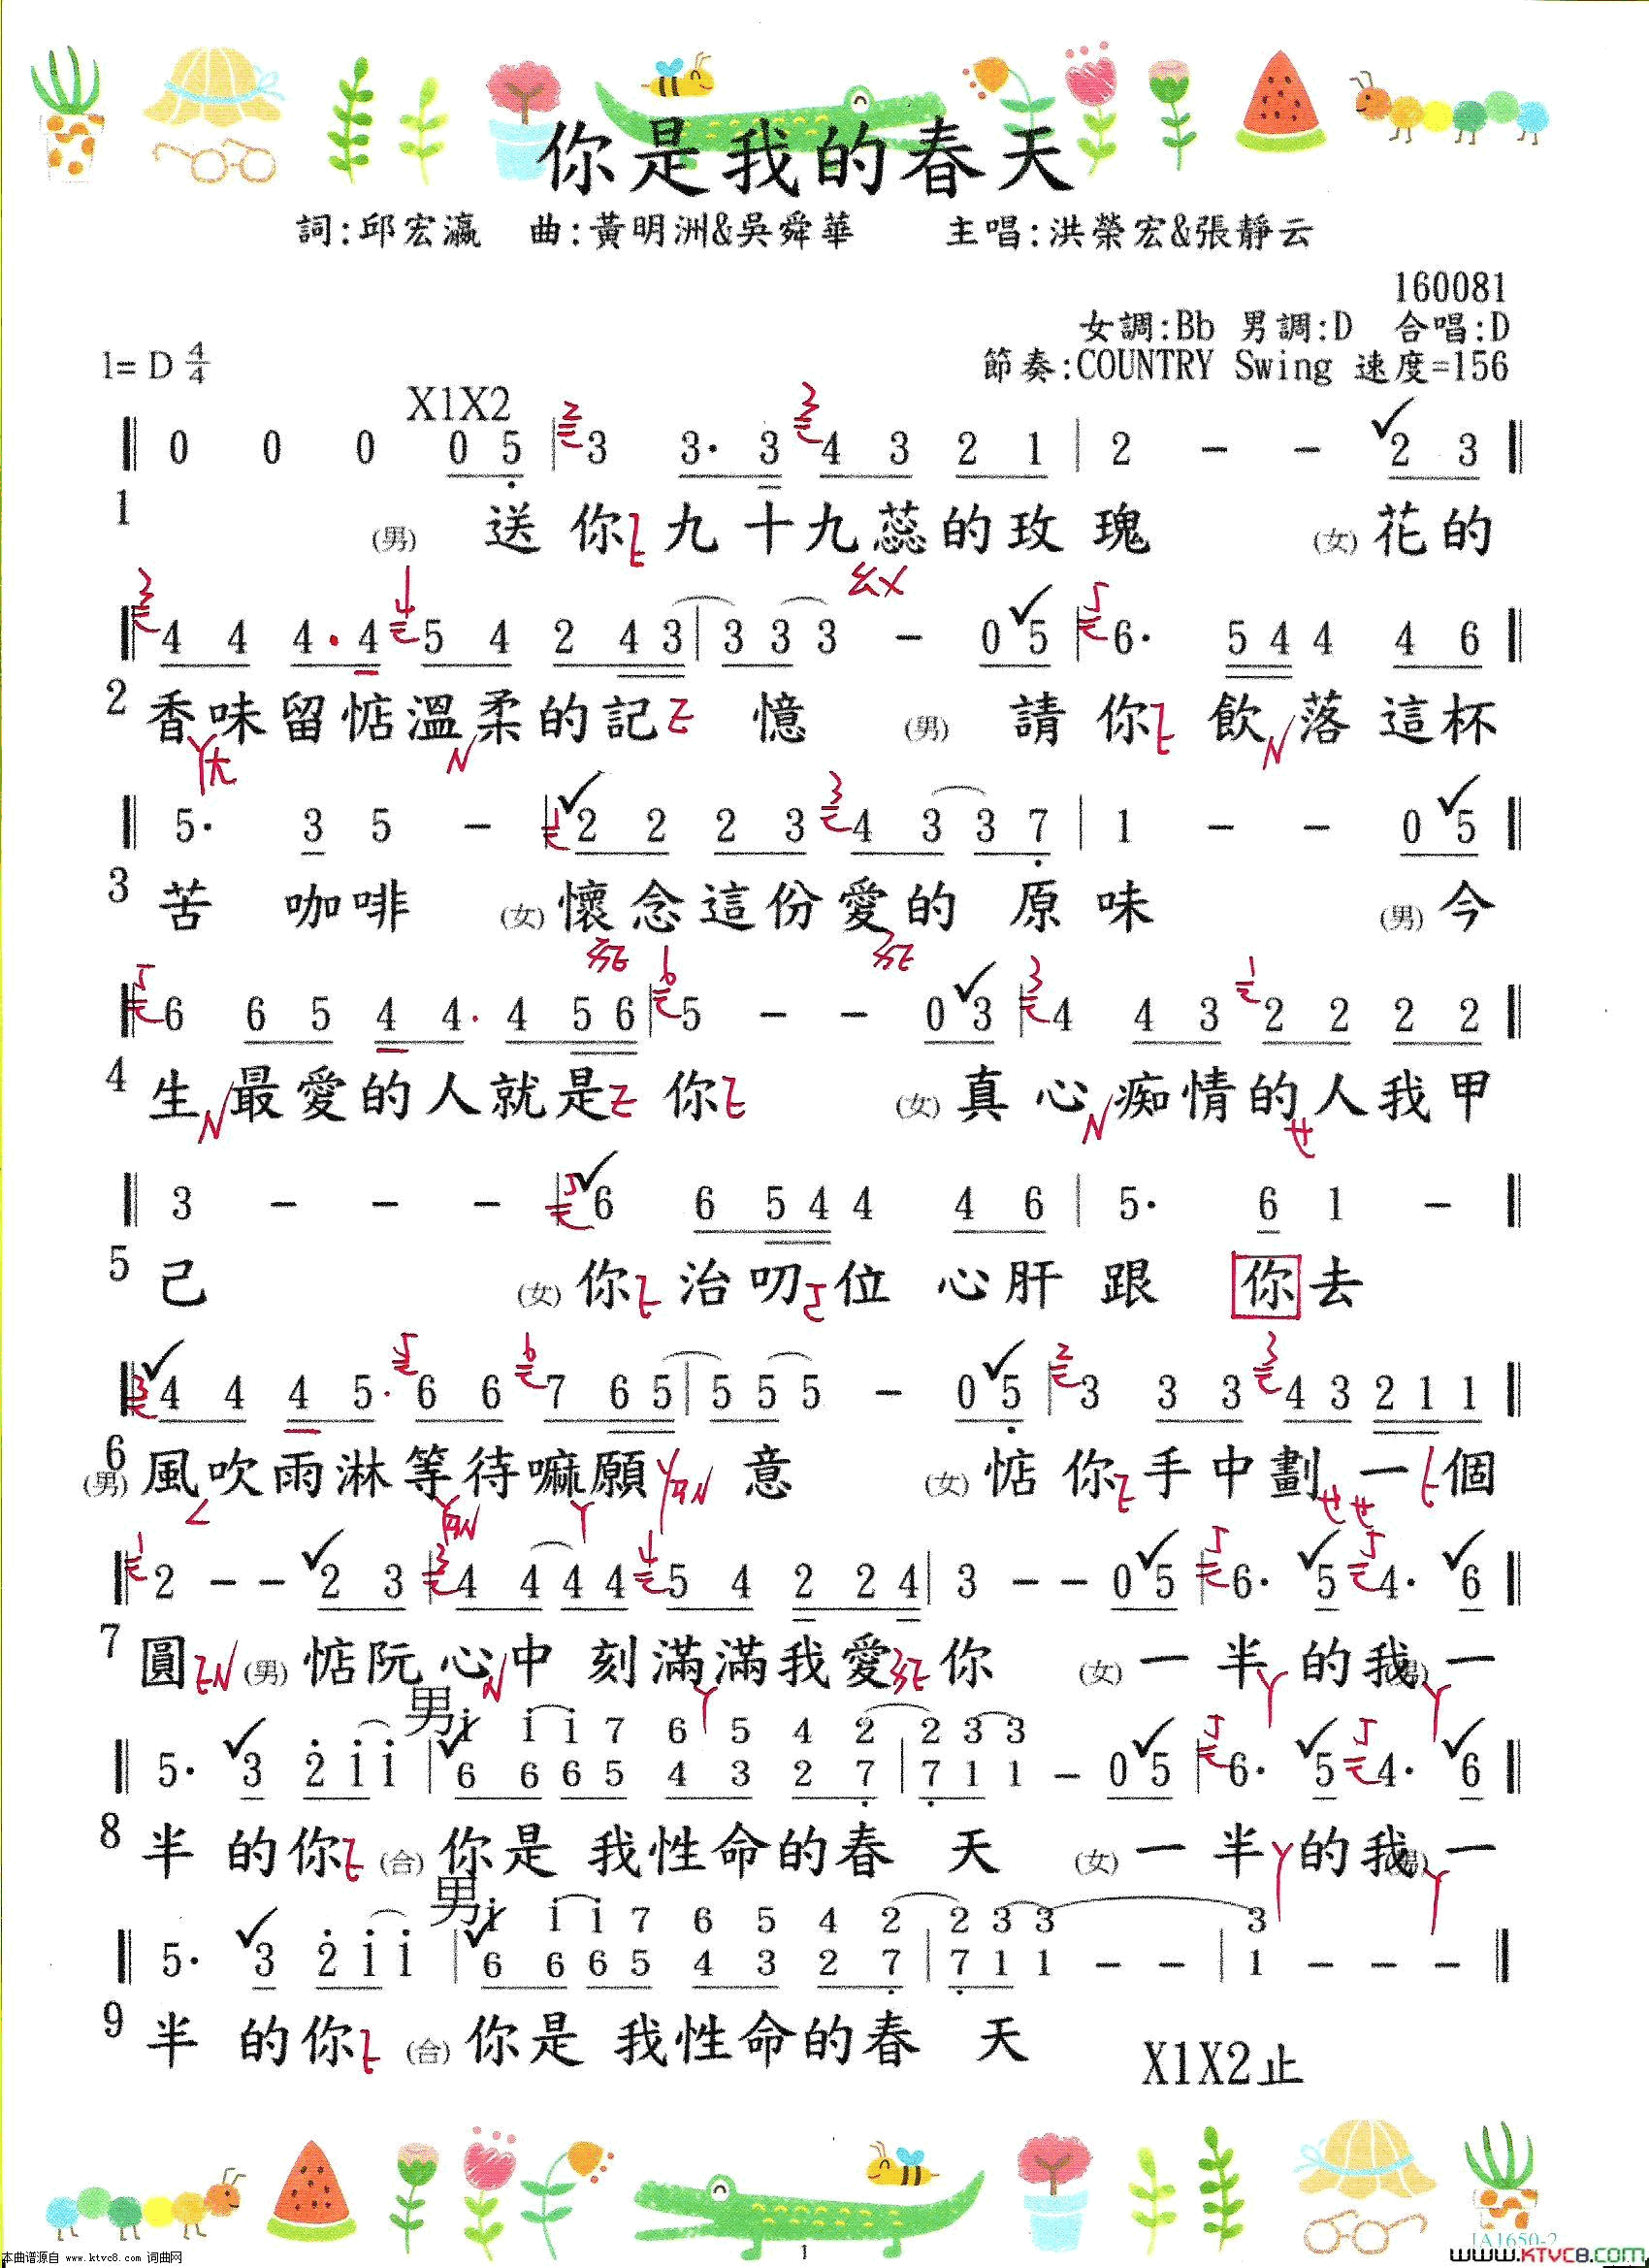 你是我的春天
詞:邱宏瀛 曲:黃明洲&吳舜華 主唱:洪榮宏&張靜云
160081
女調:Bb 男調:D 合唱:D
1= D 4/4 節奏:COUNTRY Swing 速度=156
X1X2
0 0 0 0 5 | 3 3· 3 4 3 2 1 | 2 - - 2 3
1 (男) 送你九十九蕊的玫瑰 (女) 花的
4 4 4·4 5 4 2 4 3 | 3 3 3 - 0 5 | 6· 5 4 4 4 6
2 香味留惦溫柔的記憶 (男) 請你飲落這杯
5· 3 5 - | 2 2 2 3 4 3 3 7 | 1 - - 0 5
3 苦咖啡 (女) 懷念這份愛的原味 (男) 今
6 6 5 4 4· 4 5 6 | 5 - - 0 3 | 4 4 3 2 2 2 2
4 生最愛的人就是你 (女) 真心痴情的人我甲
3 - - - | 6 6 5 4 4 4 6 | 5· 6 1 -
5 己 (女) 你治叨位心肝跟你去
4 4 4 5· 6 6 7 6 5 | 5 5 5 - 0 5 | 3 3 3 4 3 2 1 1
6 (男) 風吹雨淋等待嘛願意 (女) 惦你手中劃一個
2 - - 2 3 | 4 4 4 4 5 4 2 2 4 | 3 - - 0 5 | 6· 5 4· 6
7 圓 (男) 惦阮心中刻滿滿我愛你 (女) 一半的我 (男) 一
男 i i i 7 6 5 4 2 2 3 3
5· 3 2 i i | 6 6 6 5 4 3 2 7 | 7 1 1 - 0 5 | 6· 5 4· 6
8 半的你 (合) 你是我性命的春天 (女) 一半的我 (男) 一
男 i i i 7 6 5 4 2 2 3 3 3
5· 3 2 i i | 6 6 6 5 4 3 2 7 | 7 1 1 - - | 1 - - -
9 半的你 (合) 你是我性命的春天
X1X2止
JA1650-2
1
本曲谱源自 www.ktvc8.com 词曲网
WWW.KTVC8.COM